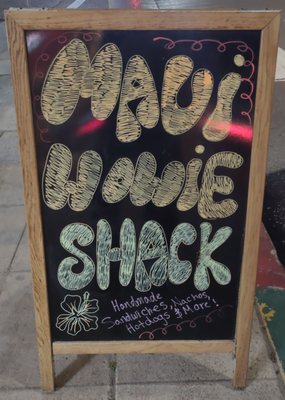 MAUi
HOWiE
SHACK
Handmade
Sandwiches, Nachos,
Hotdogs & More!